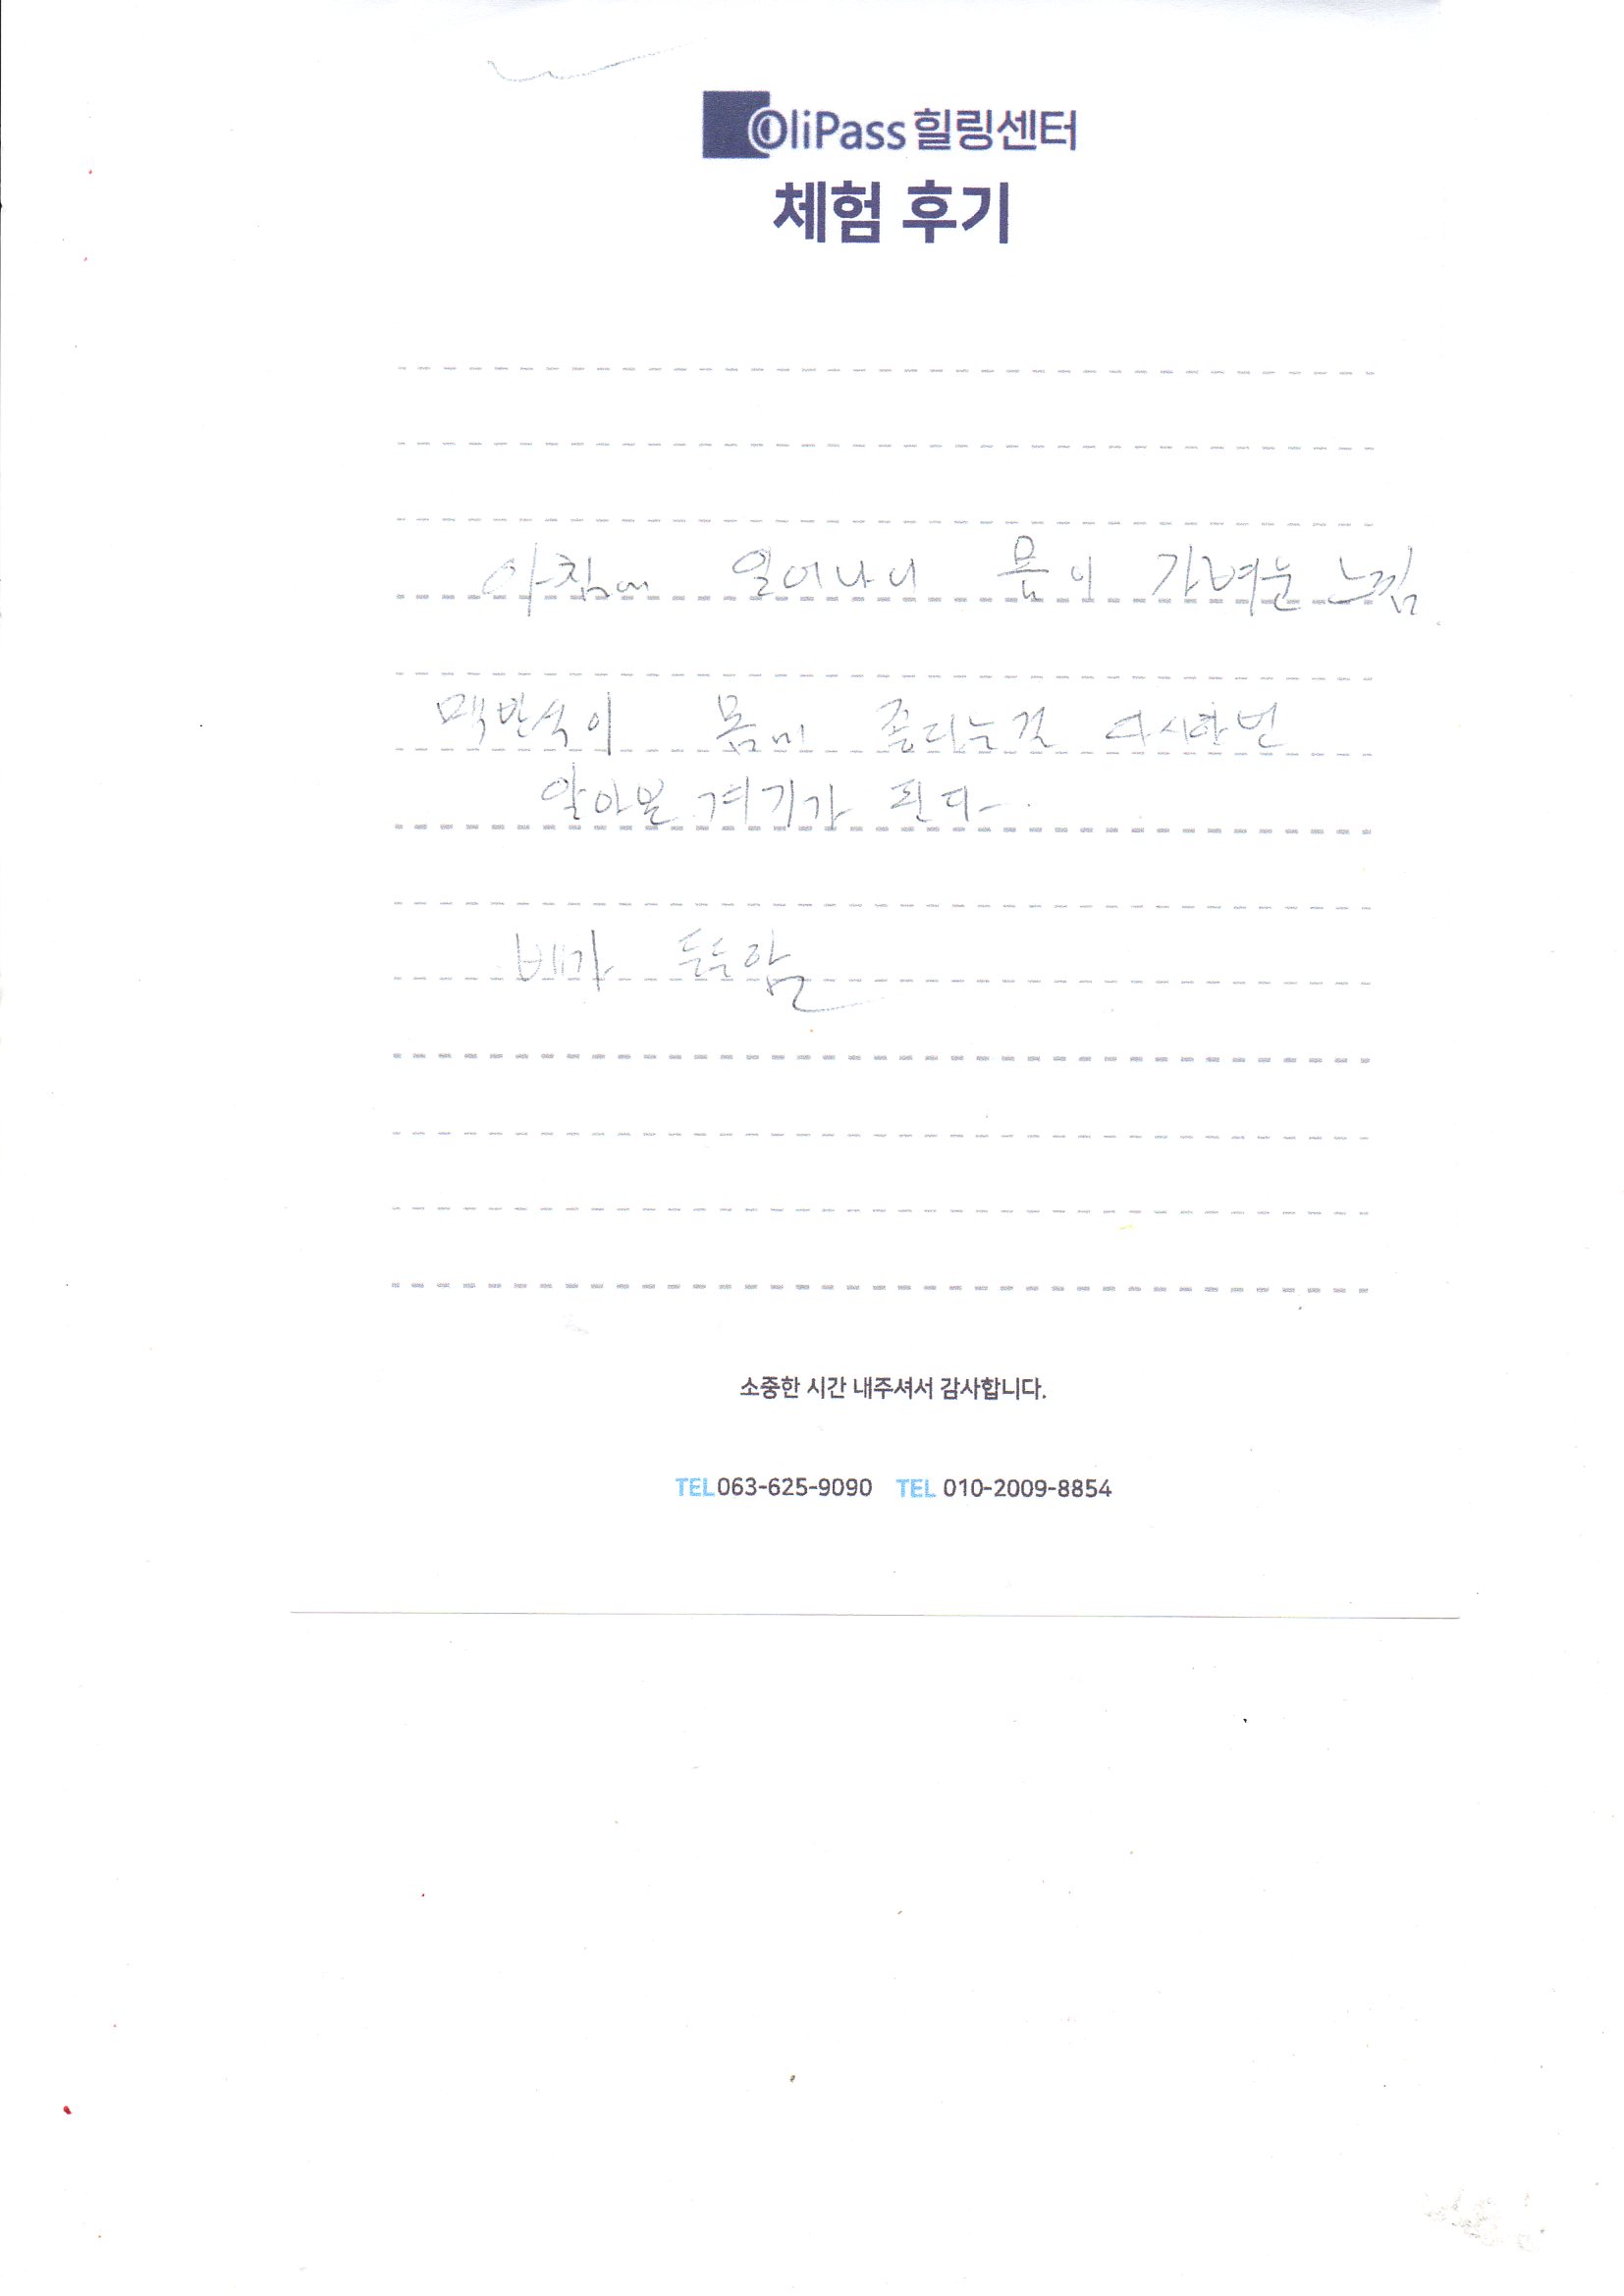 OliPass 힐링센터
체험 후기
아침에 일어나니 몸이 가벼운 느낌
맥반석이 몸에 좋다는걸 다시한번
알아본 계기가 된다.
배가 든든함
소중한 시간 내주셔서 감사합니다.
TEL 063-625-9090 TEL 010-2009-8854